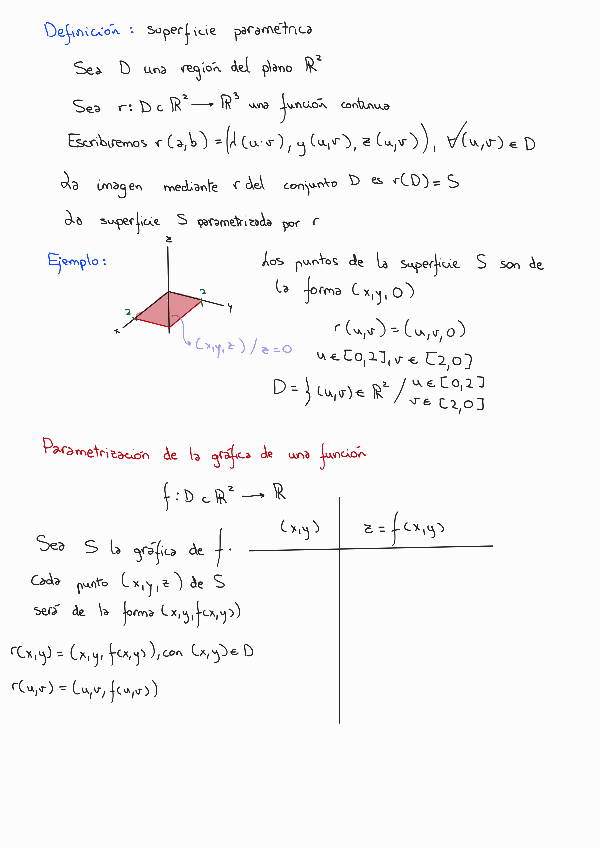 Definición: superficie parametrica
Sea D una región del plano ℝ²
Sea r: D ⊂ ℝ² → ℝ³ una función continua
Escribiremos r(a,b) = (x(u·v), y(u,v), z(u,v)), ∀(u,v) ∈ D
La imagen mediante r del conjunto D es r(D) = S
La superficie S parametrizada por r
Ejemplo:
z
2
y
2
x
(x,y,z) / z=0
Los puntos de la superficie S son de
la forma (x,y,0)
r(u,v) = (u,v,0)
u ∈ [0,2], v ∈ [2,0]
D = } (u,v) ∈ ℝ² / u ∈ [0,2]
v ∈ [2,0]
Parametrización de la gráfica de una función
f: D ⊂ ℝ² → ℝ
(x,y) z = f(x,y)
Sea S la gráfica de f.
Cada punto (x,y,z) de S
será de la forma (x,y,f(x,y))
r(x,y) = (x,y, f(x,y)), con (x,y) ∈ D
r(u,v) = (u,v, f(u,v))